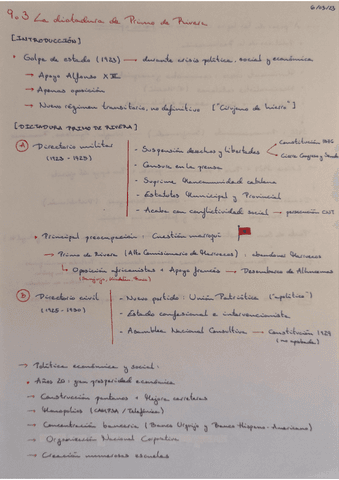 6/03/23
9.3 La dictadura de Primo de Rivera
[INTRODUCCIÓN]
• Golpe de estado (1923) → durante crisis política, social y económica
→ Apoyo Alfonso XIII
→ Apenas oposición
→ Nuevo régimen transitorio, no definitivo ["Cirujano de hierro"]
[DICTADURA PRIMO DE RIVERA]
A Directorio militar (1923 - 1925)
- Suspensión derechos y libertades
Constitución 1876
Cierre Congreso y Senado
- Censura en la prensa
- Suprime Mancomunidad catalana
- Estatutos Municipal y Provincial
- Acaba con conflictividad social → persecución CNT
• Principal preocupación: Cuestión marroquí
→ Primo de Rivera (Alto Comisionario de Marruecos): abandonar Marruecos
↳ Oposición africanistas + Apoyo francés → Desembarco de Alhucemas
B Directorio civil (1925 - 1930)
- Nuevo partido: Unión Patriótica ("apolítico")
- Estado confesional e intervencionista
- Asamblea Nacional Consultiva → Constitución 1929
(no aprobada)
→ Política económica y social:
• Años 20: gran prosperidad económica
→ Construcción pantanos + Mejora carreteras
→ Monopolios (CAMPSA / Telefónica)
→ Concentración bancaria (Banco Urquijo y Banco Hispano-Americano)
→ Organización Nacional Corporativa
→ Creación numerosas escuelas